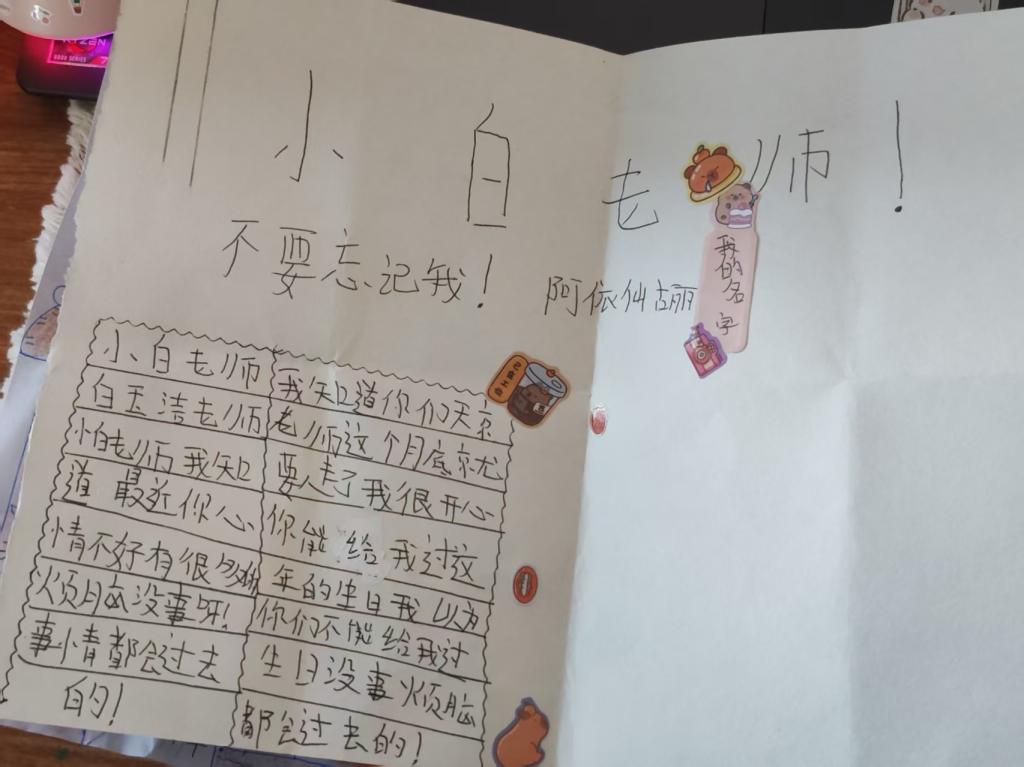 小白老师！
不要忘记我！
阿依仙古丽
我的名字
小白老师
白玉洁老师
怕老师我知
道 最近你心
情不好有很多
烦脑没事呀！
事情都会过去
的！
我知道你们天京
老师这个月底就
要走了我很开心
你能给我过这
年的生日我以为
你们不能给我过
生日没事烦脑
都会过去的！